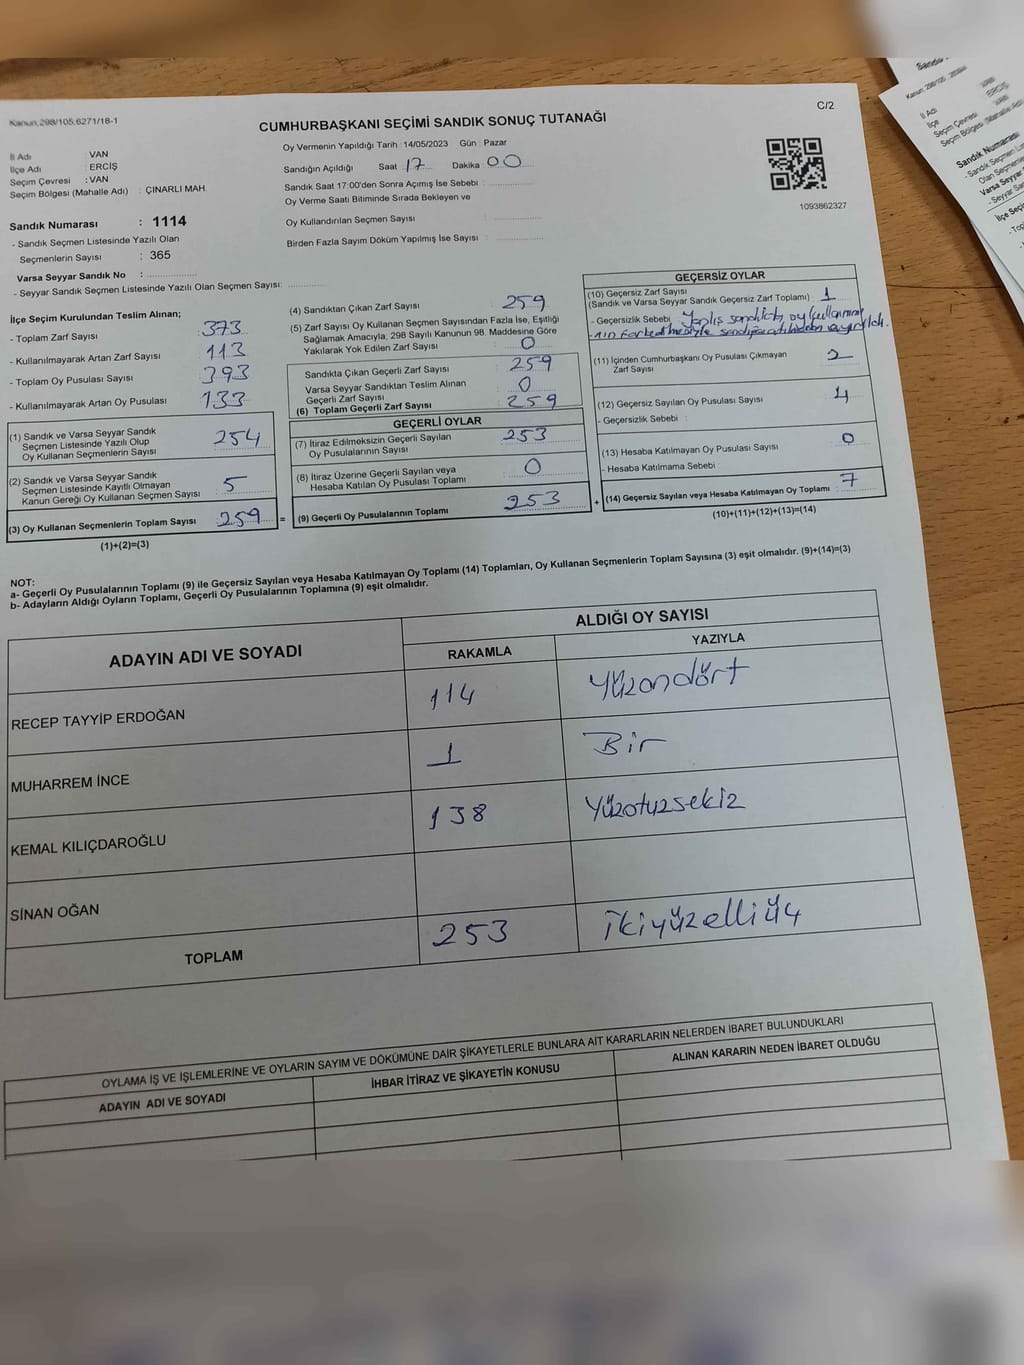 C/2
Kanun: 298/105,6271/18-1
CUMHURBAŞKANI SEÇİMİ SANDIK SONUÇ TUTANAĞI
İl Adı VAN
İlçe Adı ERCİŞ
Seçim Çevresi : VAN
Seçim Bölgesi (Mahalle Adı) : ÇINARLI MAH.
Sandık Numarası : 1114
- Sandık Seçmen Listesinde Yazılı Olan
Seçmenlerin Sayısı : 365
Varsa Seyyar Sandık No :
- Seyyar Sandık Seçmen Listesinde Yazılı Olan Seçmen Sayısı:
Oy Vermenin Yapıldığı Tarih : 14/05/2023 Gün : Pazar
Sandığın Açıldığı Saat 17 Dakika 00
Sandık Saat 17:00'den Sonra Açımış İse Sebebi :
Oy Verme Saati Bitiminde Sırada Bekleyen ve
Oy Kullandırılan Seçmen Sayısı :
Birden Fazla Sayım Döküm Yapılmış İse Sayısı :
1093862327
İlçe Seçim Kurulundan Teslim Alınan;
- Toplam Zarf Sayısı : 373
- Kullanılmayarak Artan Zarf Sayısı : 113
- Toplam Oy Pusulası Sayısı : 393
- Kullanılmayarak Artan Oy Pusulası : 133
(1) Sandık ve Varsa Seyyar Sandık
Seçmen Listesinde Yazılı Olup
Oy Kullanan Seçmenlerin Sayısı : 254
(2) Sandık ve Varsa Seyyar Sandık
Seçmen Listesinde Kayıtlı Olmayan
Kanun Gereği Oy Kullanan Seçmen Sayısı : 5
(3) Oy Kullanan Seçmenlerin Toplam Sayısı : 259 =
(1)+(2)=(3)
(4) Sandıktan Çıkan Zarf Sayısı : 259
(5) Zarf Sayısı Oy Kullanan Seçmen Sayısından Fazla İse, Eşitliği
Sağlamak Amacıyla, 298 Sayılı Kanunun 98. Maddesine Göre
Yakılarak Yok Edilen Zarf Sayısı : 0
Sandıkta Çıkan Geçerli Zarf Sayısı : 259
Varsa Seyyar Sandıktan Teslim Alınan
Geçerli Zarf Sayısı : 0
(6) Toplam Geçerli Zarf Sayısı : 259
GEÇERLİ OYLAR
(7) İtiraz Edilmeksizin Geçerli Sayılan
Oy Pusulalarının Sayısı : 253
(8) İtiraz Üzerine Geçerli Sayılan veya
Hesaba Katılan Oy Pusulası Toplamı : 0
(9) Geçerli Oy Pusulalarının Toplamı : 253 +
GEÇERSİZ OYLAR
(10) Geçersiz Zarf Sayısı
(Sandık ve Varsa Seyyar Sandık Geçersiz Zarf Toplamı) : 1
- Geçersizlik Sebebi : Yanlış sandıkta oy kullanımı
nın farkedilmesiyle
(11) İçinden Cumhurbaşkanı Oy Pusulası Çıkmayan
Zarf Sayısı : 2
(12) Geçersiz Sayılan Oy Pusulası Sayısı : 4
- Geçersizlik Sebebi :
(13) Hesaba Katılmayan Oy Pusulası Sayısı : 0
- Hesaba Katılmama Sebebi :
(14) Geçersiz Sayılan veya Hesaba Katılmayan Oy Toplamı : 7
(10)+(11)+(12)+(13)=(14)
NOT:
a- Geçerli Oy Pusulalarının Toplamı (9) ile Geçersiz Sayılan veya Hesaba Katılmayan Oy Toplamı (14) Toplamları, Oy Kullanan Seçmenlerin Toplam Sayısına (3) eşit olmalıdır. (9)+(14)=(3)
b- Adayların Aldığı Oyların Toplamı, Geçerli Oy Pusulalarının Toplamına (9) eşit olmalıdır.
ADAYIN ADI VE SOYADI
ALDIĞI OY SAYISI
RAKAMLA YAZIYLA
RECEP TAYYİP ERDOĞAN 114 Yüzondört
MUHARREM İNCE 1 Bir
KEMAL KILIÇDAROĞLU 138 Yüzotuzsekiz
SİNAN OĞAN
TOPLAM 253 ikiyüzelliüç
OYLAMA İŞ VE İŞLEMLERİNE VE OYLARIN SAYIM VE DÖKÜMÜNE DAİR ŞİKAYETLERLE BUNLARA AİT KARARLARIN NELERDEN İBARET BULUNDUKLARI
ADAYIN ADI VE SOYADI İHBAR İTİRAZ VE ŞİKAYETİN KONUSU ALINAN KARARIN NEDEN İBARET OLDUĞU